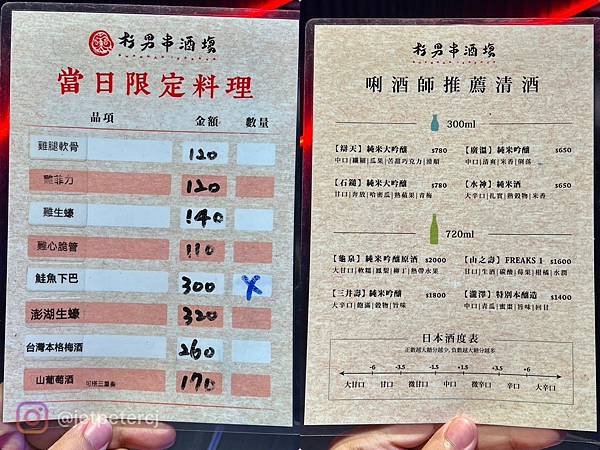 杉男串酒場
當日限定料理
品項 金額 數量
雞腿軟骨 120
雞菲力 120
雞生蠔 140
雞心脆管 110
鮭魚下巴 300 X
澎湖生蠔 320
台灣本格梅酒 260
山葡萄酒 可搭三重奏 170
@ietpetercj
杉男串酒場
唎酒師推薦清酒
300ml
【辯天】純米大吟釀 $780
中口|纖細|瓜果|苦甜巧克力|滑順
【廣溫】純米吟釀 $650
中口|清爽|米香|俐落
【石鎚】純米大吟釀 $780
甘口|奔放|哈密瓜|熱蘋果|青梅
【水神】純米酒 $650
大辛口|扎實|熟穀物|米香
720ml
【龜泉】純米吟釀原酒 $2000
大甘口|軟糯|鳳梨|柳丁|熱帶水果
【山之壽】FREAKS 1 $1600
甘口|生酒|碳酸|莓果|柑橘|水潤
【三井壽】純米吟釀 $1800
大辛口|飽滿|穀物|旨味
【瀧澤】特別本釀造 $1400
中口|青瓜|蜜棗|旨味|回甘
日本酒度表
正數越大糖分越少,負數越大糖分越多
-6 -3.5 -1.5 +1.5 +3.5 +6
大甘口 甘口 微甘口 中口 微辛口 辛口 大辛口